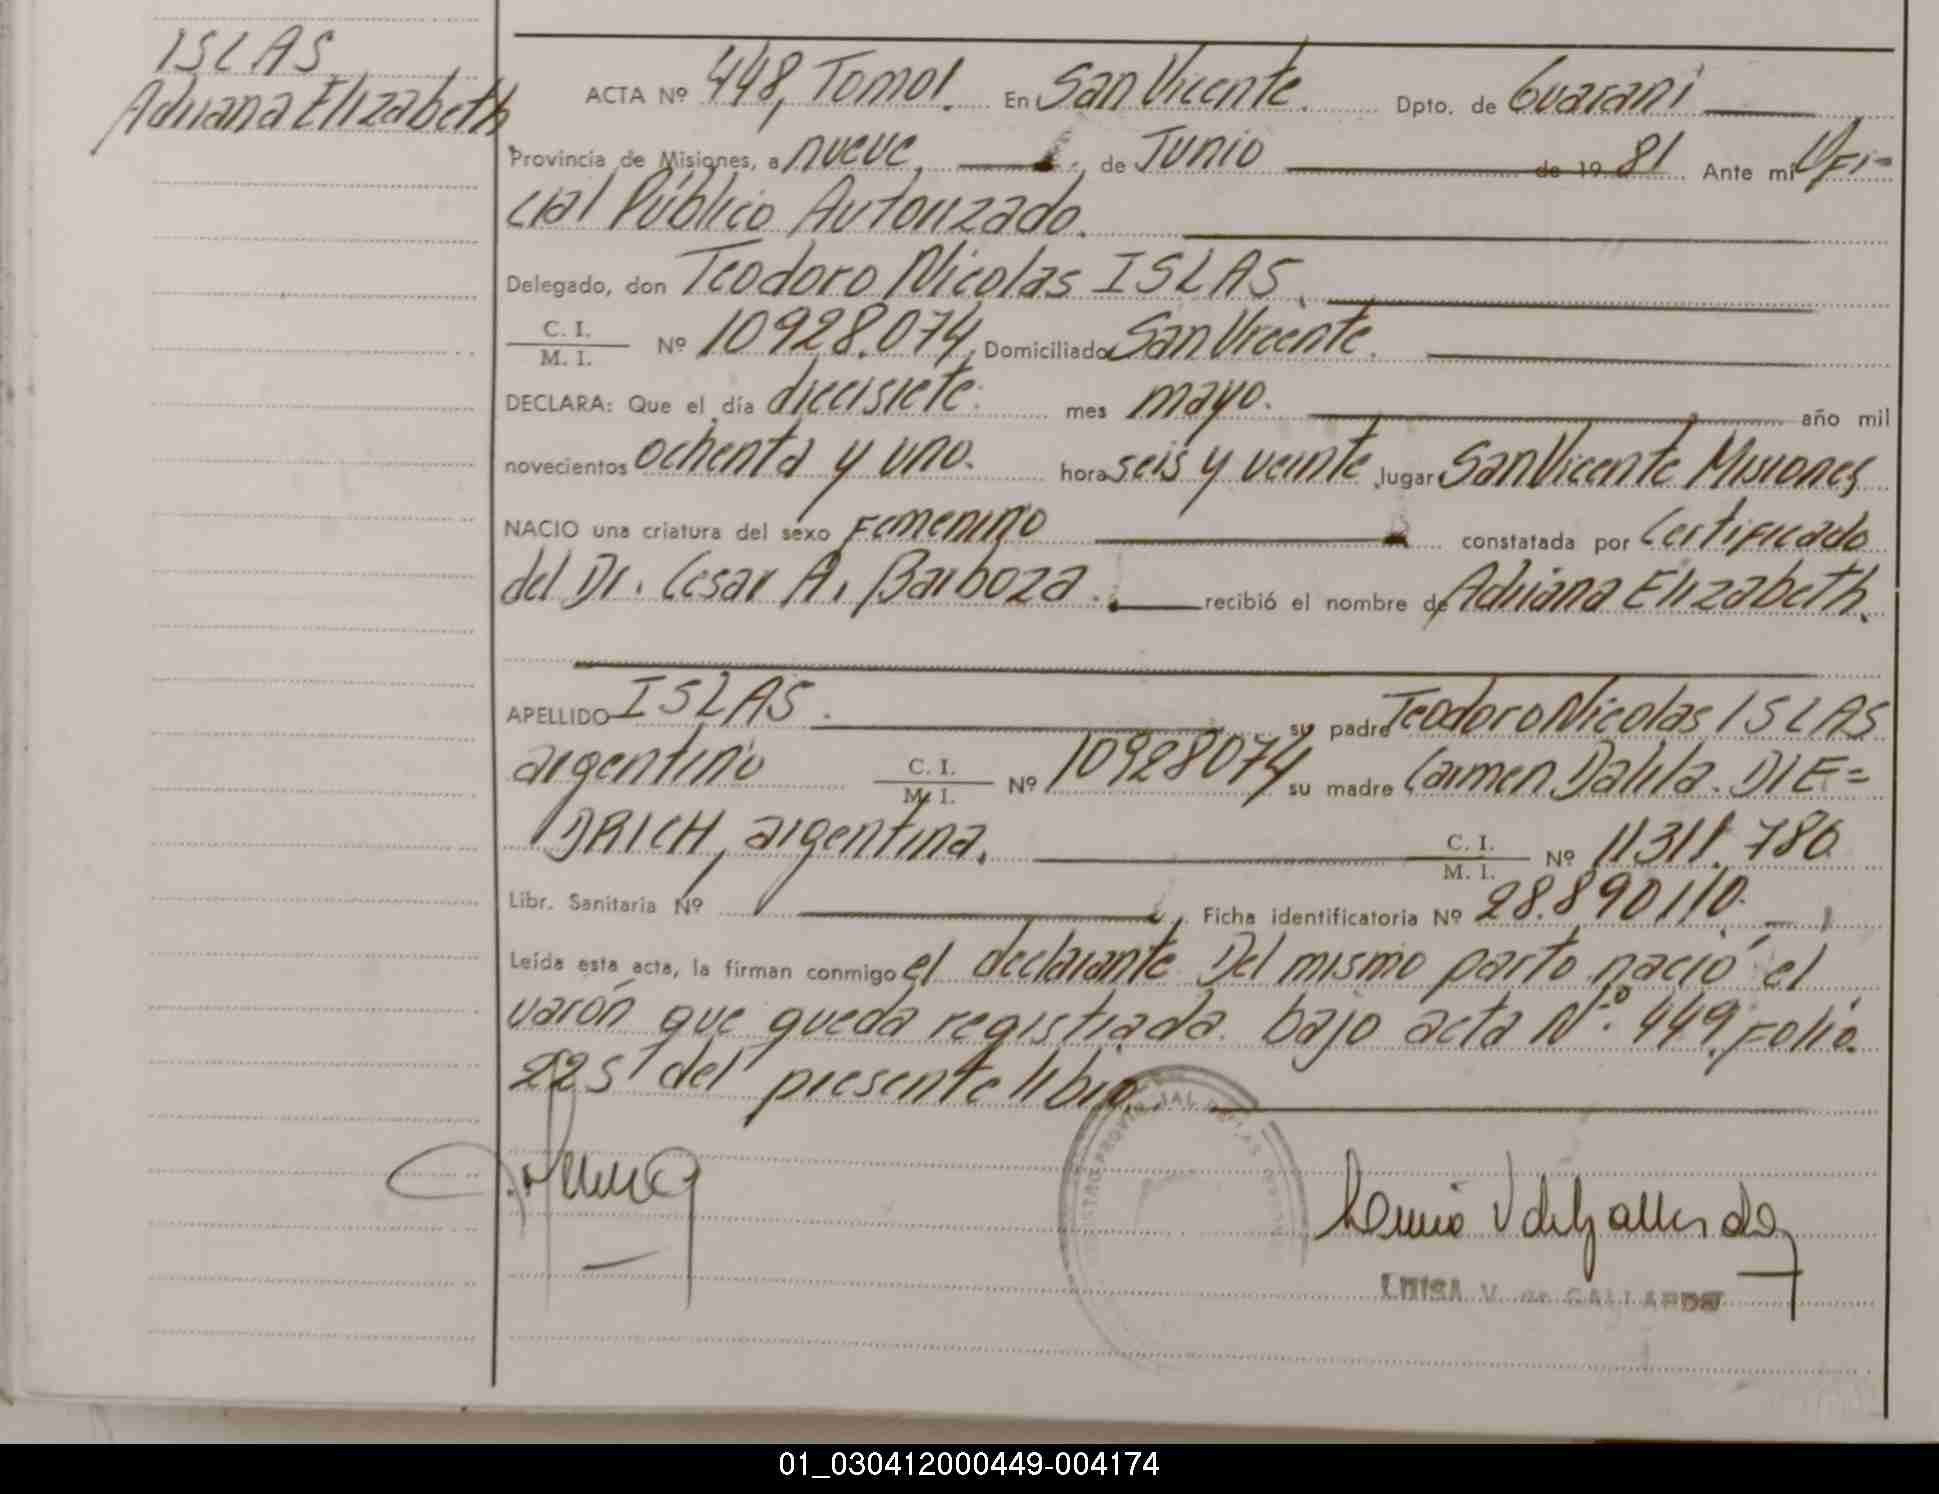 ISLAS
Adriana Elizabeth
ACTA Nº 448, Tomo I. En San Vicente. Dpto. de Guaraní
Provincia de Misiones, a nueve, de Junio de 1981 Ante mi Ofi=
cial Público Autorizado.
Delegado, don Teodoro Nicolas ISLAS,
C. I.
M. I. Nº 10928.074, Domiciliado San Vicente.
DECLARA: Que el día diecisiete. mes mayo. año mil
novecientos ochenta y uno. hora seis y veinte lugar San Vicente Misiones
NACIO una criatura del sexo Femenino constatada por Certificado
del Dr. Cesar A. Barboza. recibió el nombre de Adriana Elizabeth.
APELLIDO ISLAS. su padre Teodoro Nicolas ISLAS
argentino C. I.
M. I. Nº 10928074 su madre Carmen Dalila. DIE=
DRICH, argentina. C. I.
M. I. Nº 11311.786
Libr. Sanitaria Nº Ficha identificatoria Nº 28.890110.
Leída esta acta, la firman conmigo el declarante. Del mismo parto nació el
varón que queda registrada bajo acta Nº. 449, Folio.
225 del presente libro.
LUISA V. de GALLARDO
01_030412000449-004174